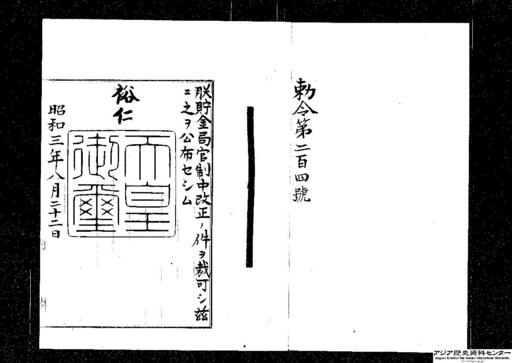 勅令第二百四號
朕貯金局官制中改正ノ件ヲ裁可シ茲
ニ之ヲ公布セシム
裕仁
天皇
御璽
昭和三年八月二十二日
アジア歴史資料センター
Japan Center for Asian Historical Records